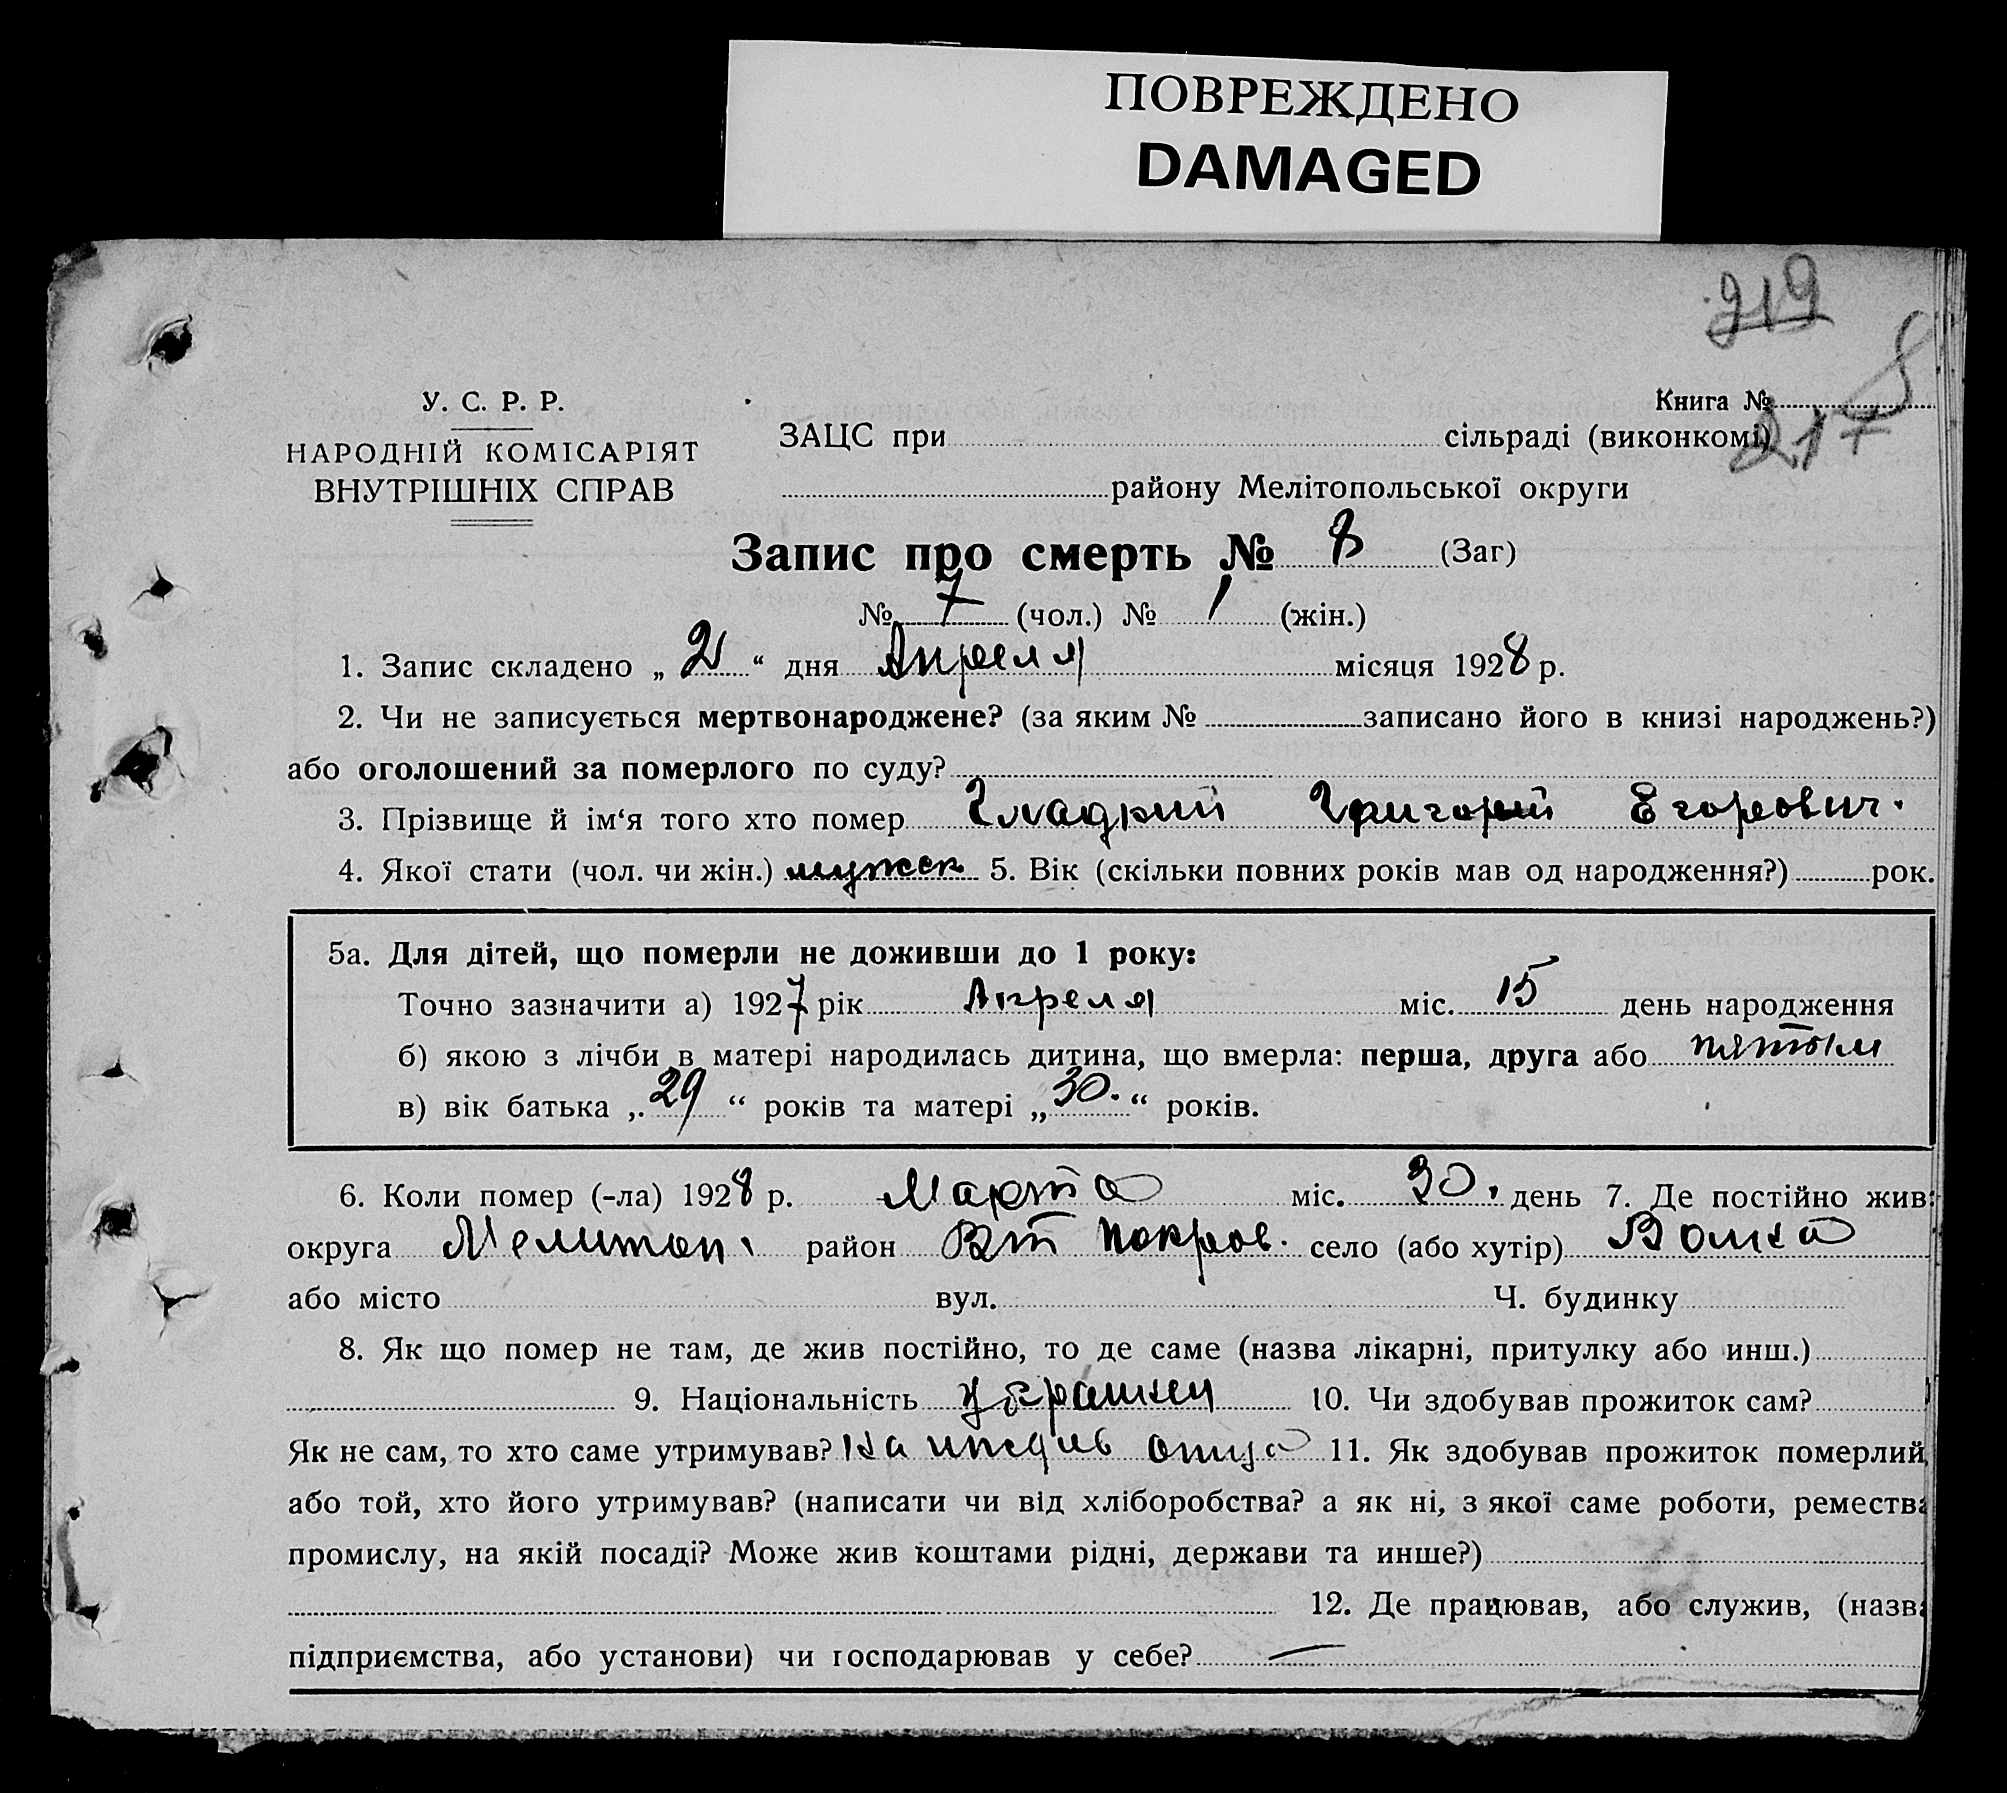 ПОВРЕЖДЕНО
DAMAGED
919
У. С. Р. Р.
НАРОДНІЙ КОМІСАРІЯТ
ВНУТРІШНІХ СПРАВ
Книга №
217
ЗАЦС при сільраді (виконкомі)
району Мелітопольської округи
Запис про смерть № 8 (Заг)
№ 7 (чол.) № 1 (жін.)
1. Запис складено „ 2 “ дня Апреля місяця 1928 р.
2. Чи не записується мертвонароджене? (за яким № записано його в книзі народжень?)
або оголошений за померлого по суду?
3. Прізвище й ім‘я того хто помер Гладкий Григорий Егорович.
4. Якої стати (чол. чи жін.) мужск 5. Вік (скільки повних років мав од народження?) рок.
5а. Для дітей, що померли не доживши до 1 року:
Точно зазначити а) 1927 рік Апреля міс. 15 день народження
б) якою з лічби в матері народилась дитина, що вмерла: перша, друга або пятым
в) вік батька „ 29 “ років та матері „ 30. “ років.
6. Коли помер (-ла) 1928 р. Марта міс. 30. день 7. Де постійно жив:
округа Мелитоп. район Вт Покров. село (або хутір)
або місто вул. Ч. будинку
8. Як що помер не там, де жив постійно, то де саме (назва лікарні, притулку або инш.)
9. Національність 10. Чи здобував прожиток сам?
Як не сам, то хто саме утримував? На иждив отца 11. Як здобував прожиток померлий
або той, хто його утримував? (написати чи від хліборобства? а як ні, з якої саме роботи, ремества
промислу, на якій посаді? Може жив коштами рідні, держави та инше?)
12. Де працював, або служив, (назва
підприємства, або установи) чи господарював у себе? —